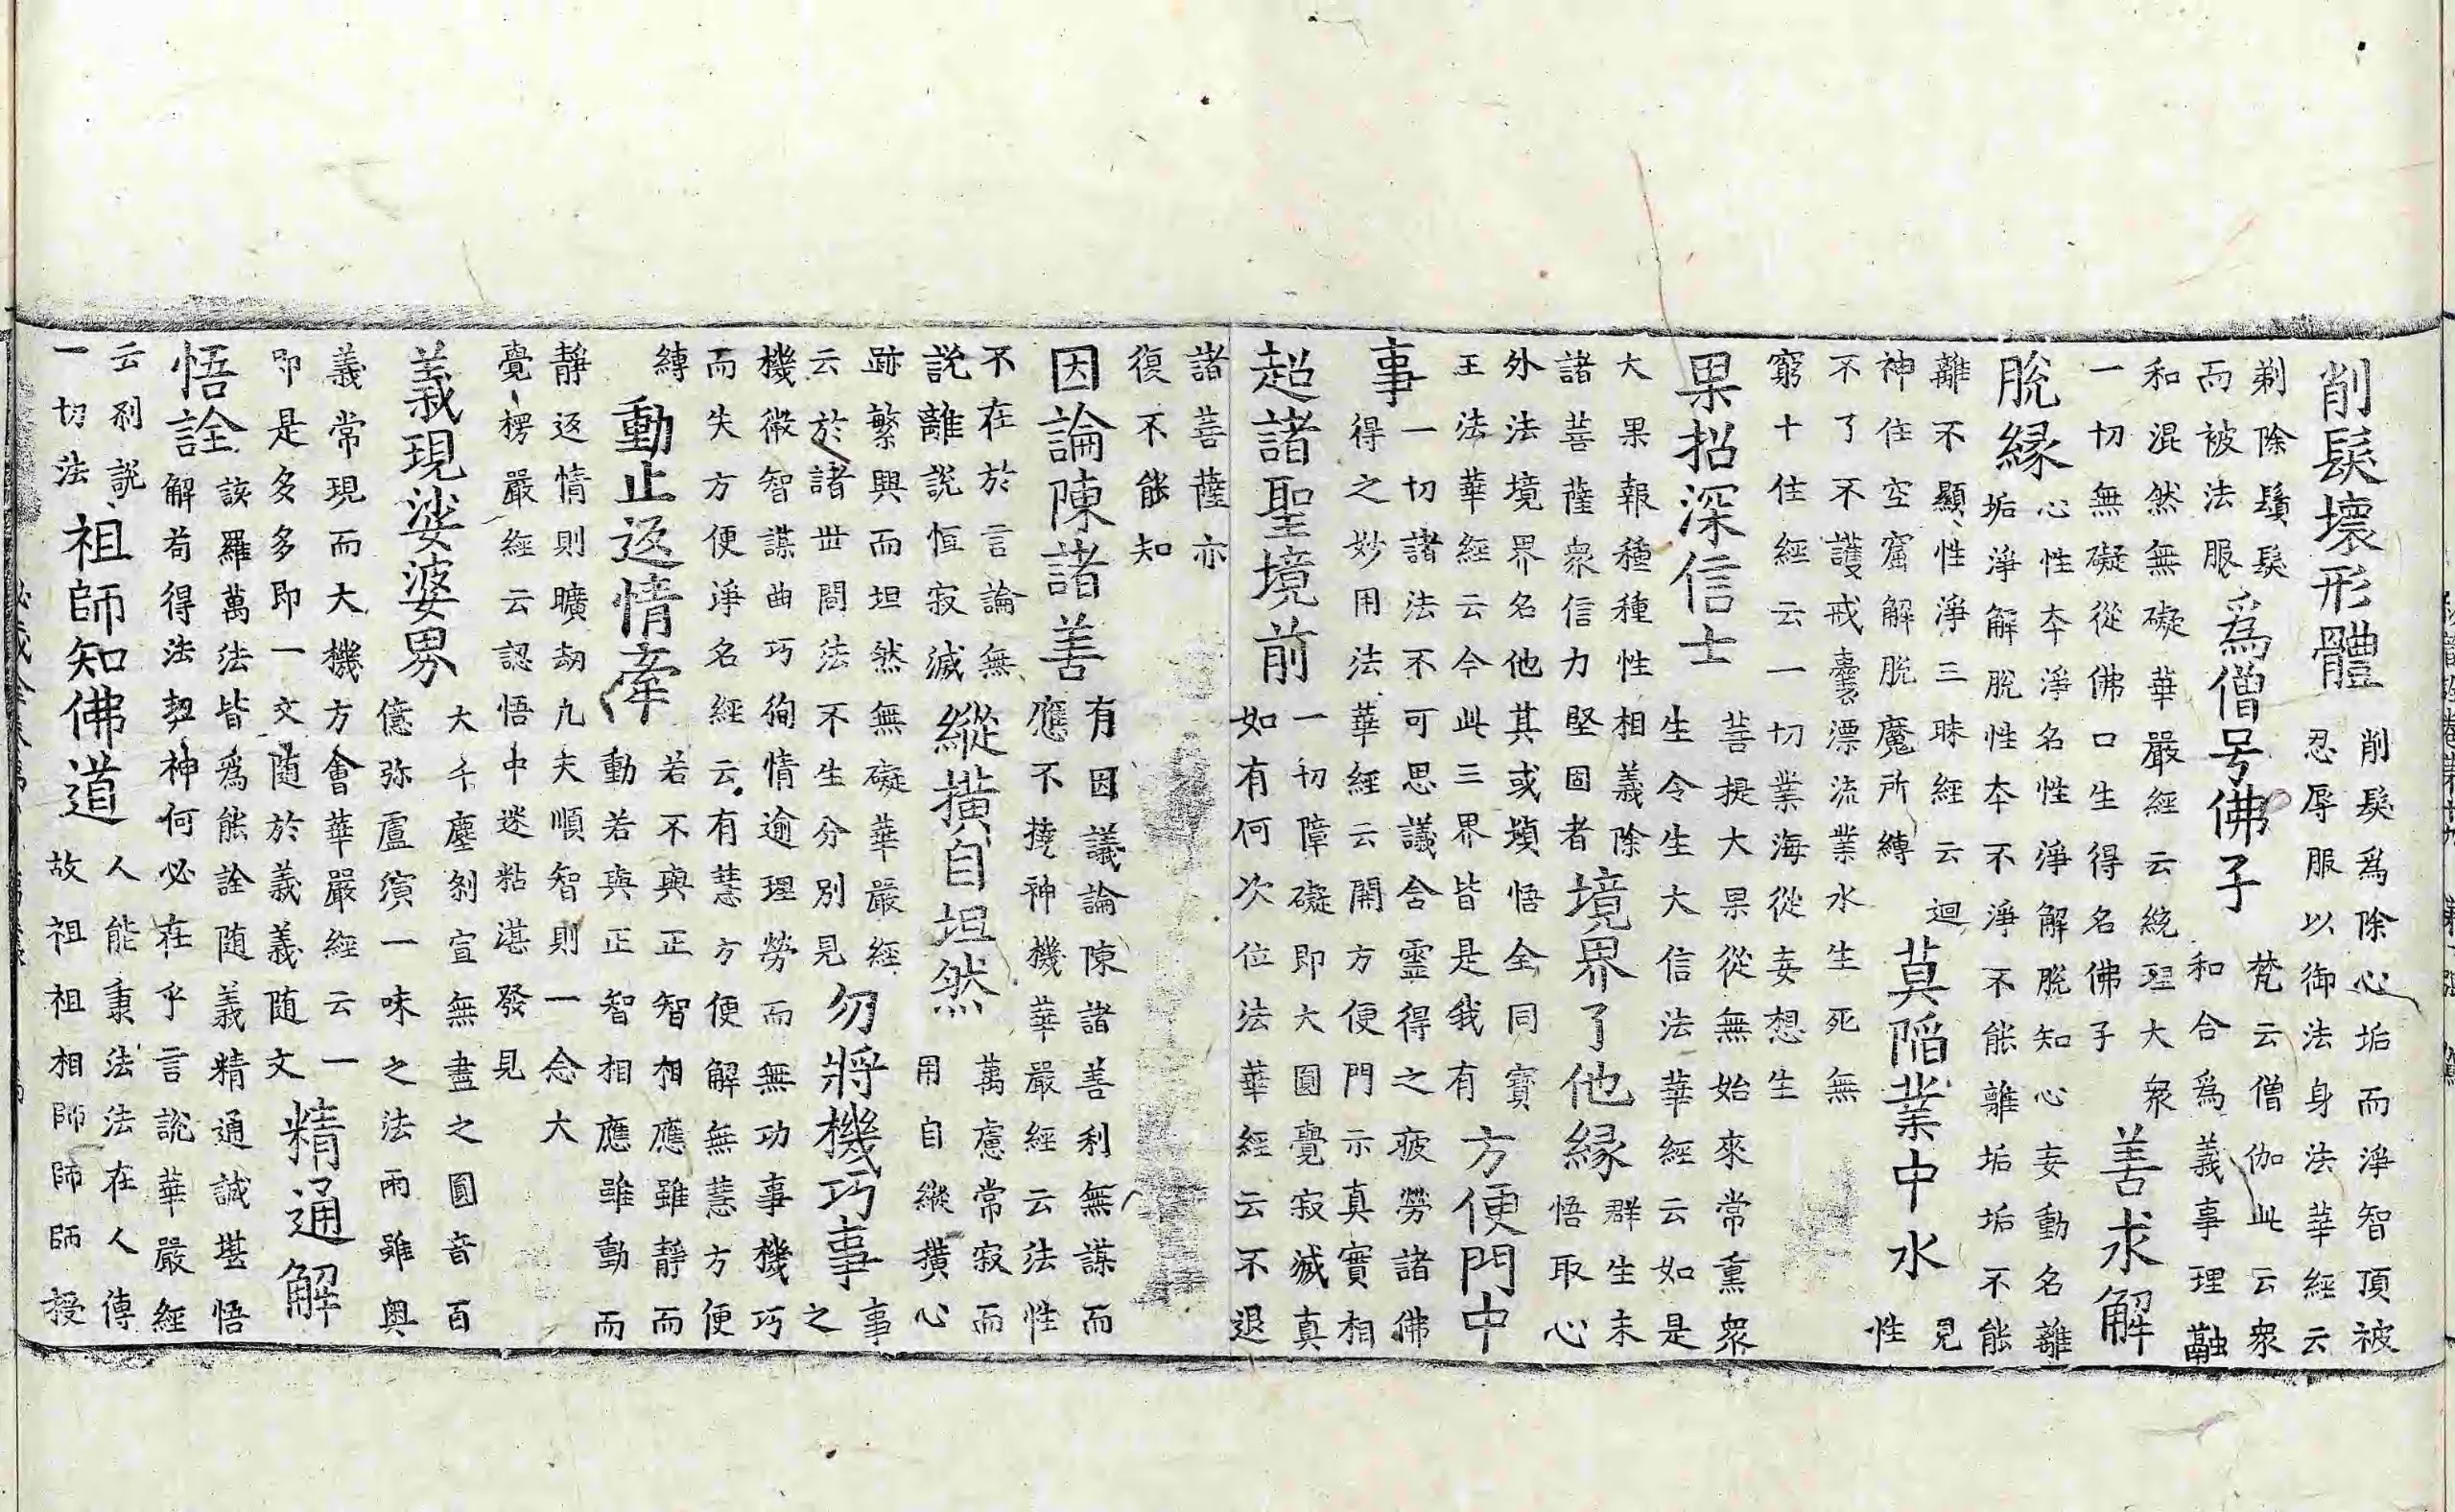 削髮壞形體
削髮爲除心垢而淨智頂被
忍辱服以御法身法華經云
剃除鬚髮
而被法服
爲僧号佛子
梵云僧伽此云衆
和合爲義事理融
和混然無礙華嚴經云統理大衆
一切無礙從佛口生得名佛子
善求解
脫縁
心性本淨名性淨解脫知心妄動名離
垢淨解脫性本不淨不能離垢垢不能
離不顯性淨三昧經云迴
神住空窟解脫魔所縛
莫陷業中水
見
性
不了不護戒囊漂流業水生死無
窮十住經云一切業海從妄想生
果招深信士
菩提大果從無始來常熏衆
生令生大信法華經云如是
大果報種種性相義除
諸菩薩衆信力堅固者
境界了他縁
群生未
悟取心
外法境界名他其或塡悟全同寳
王法華經云今此三界皆是我有
方便門中
事
一切諸法不可思議含靈得之疲勞諸佛
得之妙用法華經云開方便門示真實相
超諸聖境前
一切障礙即大圓覺寂滅真
如有何次位法華經云不退
諸菩薩亦
復不能知
因論陳諸善
有因議論陳諸善利無謀而
應不撓神機華嚴經云法性
不在於言論無
説離説恒寂滅
縱橫自坦然
萬慮常寂而
用自縱橫心
跡繁興而坦然無礙華嚴經
云於諸世間法不生分別見
勿將機巧事
事
之
機微智謀曲巧徇情逾理勞而無功事機巧
而失方便淨名經云有慧方便解無慧方便
縛
動止返情牽
若不與正智相應雖靜而
動若與正智相應雖動而
靜返情則曠劫凢夫順智則一念大
覺楞嚴經云認悟中迷粘湛發見
義現娑婆界
大千塵刹宣無盡之圓音百
億弥盧演一味之法雨雖奧
義常現而大機方會華嚴經云一
即是多多即一文隨於義義隨文
精通解
悟詮
該羅萬法皆爲能詮隨義精通誠堪悟
解苟得法契神何必在乎言説華嚴經
云刹説
一切法
祖師知佛道
人能秉法法在人傳
故祖祖相師師師授